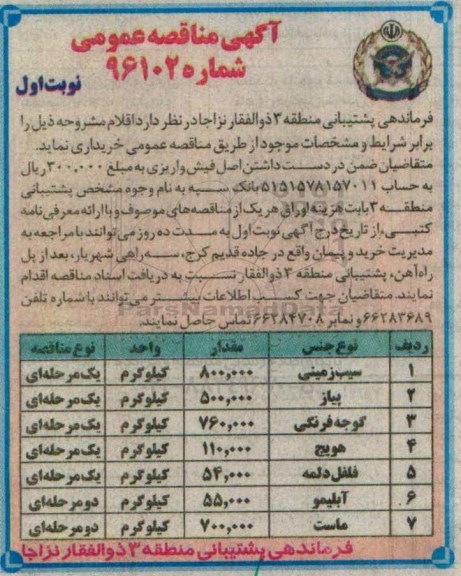 آگهی مناقصه عمومی
شماره ۹۶۱۰۲
نوبت اول
فرماندهی پشتیبانی منطقه ۳ ذوالفقار نزاجا در نظر دارد اقلام مشروحه ذیل را
برابر شرایط و مشخصات موجود از طریق مناقصه عمومی خریداری نماید.
متقاضیان ضمن در دست داشتن اصل فیش واریزی به مبلغ ۳۰۰,۰۰۰ ریال
به حساب ۵۱۵۱۵۷۸۱۵۷۰۱۱ بانک سپه به نام وجوه مشخص پشتیبانی
منطقه ۳ بابت هزینه اوراق هر یک از مناقصه‌های موصوف و با ارائه معرفی‌نامه
کتبی، از تاریخ درج آگهی نوبت اول به مدت ده روز می‌توانند با مراجعه به
مدیریت خرید و پیمان واقع در جاده قدیم کرج، سه‌راهی شهریار، بعد از پل
راه‌آهن، پشتیبانی منطقه ۳ ذوالفقار نسبت به دریافت اسناد مناقصه اقدام
نمایند. متقاضیان جهت کسب اطلاعات بیشتر می‌توانند با شماره تلفن
۶۶۲۸۳۶۸۹ و نمابر ۶۶۲۸۴۷۰۸ تماس حاصل نمایند.
ParsNamadData
ردیف نوع جنس مقدار واحد نوع مناقصه
۱ سیب‌زمینی ۸۰۰,۰۰۰ کیلوگرم یک‌مرحله‌ای
۲ پیاز ۵۰۰,۰۰۰ کیلوگرم یک‌مرحله‌ای
۳ گوجه‌فرنگی ۷۶۰,۰۰۰ کیلوگرم یک‌مرحله‌ای
۴ هویج ۱۱۰,۰۰۰ کیلوگرم یک‌مرحله‌ای
۵ فلفل دلمه ۵۴,۰۰۰ کیلوگرم یک‌مرحله‌ای
۶ آبلیمو ۵۵,۰۰۰ کیلوگرم دو مرحله‌ای
۷ ماست ۷۰۰,۰۰۰ کیلوگرم دو مرحله‌ای
فرماندهی پشتیبانی منطقه ۳ ذوالفقار نزاجا